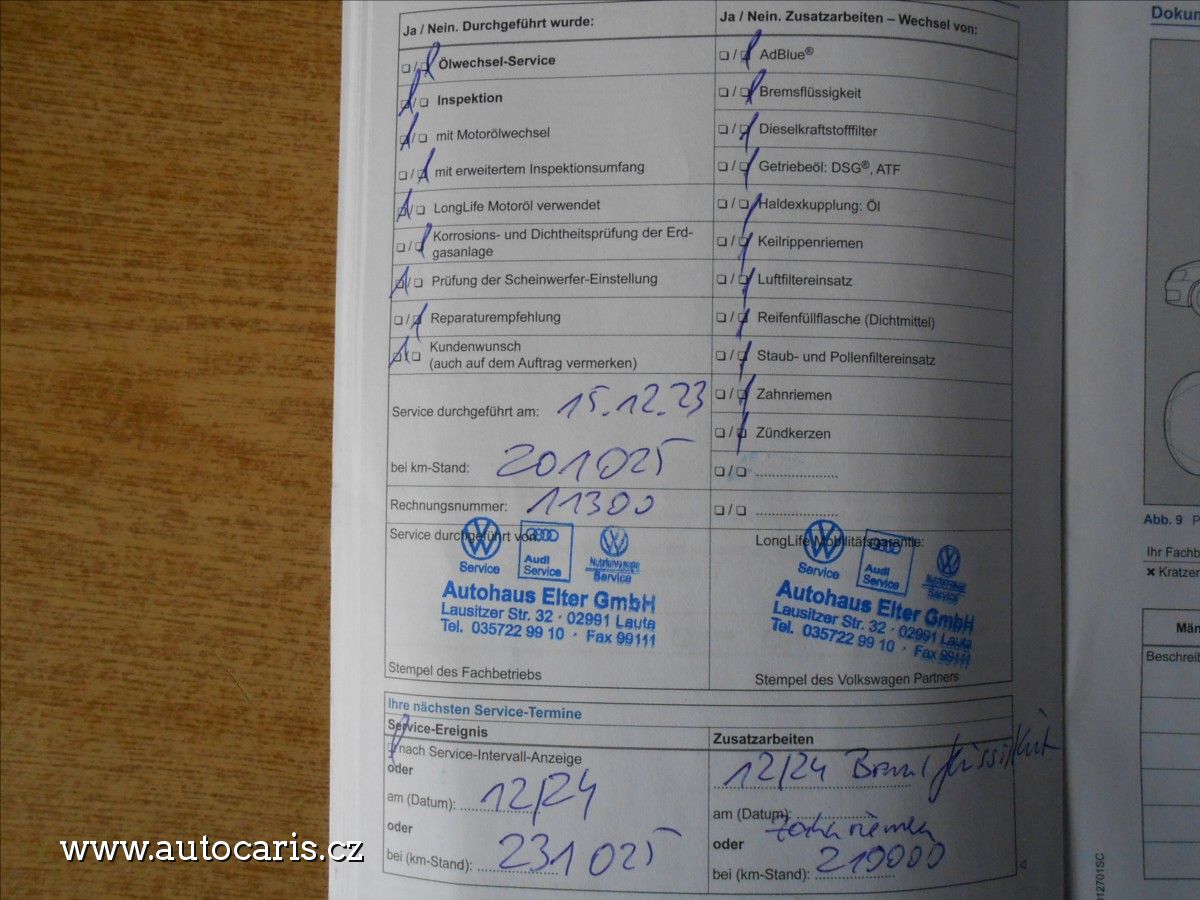 Ja / Nein. Durchgeführt wurde:
❑ / ❑ Ölwechsel-Service
❑ / ❑ Inspektion
❑ / ❑ mit Motorölwechsel
❑ / ❑ mit erweitertem Inspektionsumfang
❑ / ❑ LongLife Motoröl verwendet
❑ / ❑ Korrosions- und Dichtheitsprüfung der Erd-
gasanlage
❑ / ❑ Prüfung der Scheinwerfer-Einstellung
❑ / ❑ Reparaturempfehlung
❑ / ❑ Kundenwunsch
(auch auf dem Auftrag vermerken)
Service durchgeführt am: 15.12.23
bei km-Stand: 201025
Rechnungsnummer: 11300
Service durchgeführt von:
Service
Audi
Service
Nutzfahrzeuge
Service
Autohaus Elter GmbH
Lausitzer Str. 32 · 02991 Lauta
Tel. 035722 99 10 · Fax 99111
Stempel des Fachbetriebs
Ja / Nein. Zusatzarbeiten – Wechsel von:
❑ / ❑ AdBlue®
❑ / ❑ Bremsflüssigkeit
❑ / ❑ Dieselkraftstofffilter
❑ / ❑ Getriebeöl: DSG®, ATF
❑ / ❑ Haldexkupplung: Öl
❑ / ❑ Keilrippenriemen
❑ / ❑ Luftfiltereinsatz
❑ / ❑ Reifenfüllflasche (Dichtmittel)
❑ / ❑ Staub- und Pollenfiltereinsatz
❑ / ❑ Zahnriemen
❑ / ❑ Zündkerzen
❑ / ❑ .....................
❑ / ❑ .....................
LongLife Mobilitätsgarantie:
Service
Audi
Service
Nutzfahrzeuge
Service
Autohaus Elter GmbH
Lausitzer Str. 32 · 02991 Lauta
Tel. 035722 99 10 · Fax 99111
Stempel des Volkswagen Partners
Ihre nächsten Service-Termine
Service-Ereignis
❑ nach Service-Intervall-Anzeige
oder
am (Datum): 12/24
oder
bei (km-Stand): 231025
Zusatzarbeiten
12/24
am (Datum):
oder
bei (km-Stand): 210000
Dokum
Abb. 9 P
Ihr Fachb
× Kratzer
Män
Beschreib
012701SC
www.autocaris.cz